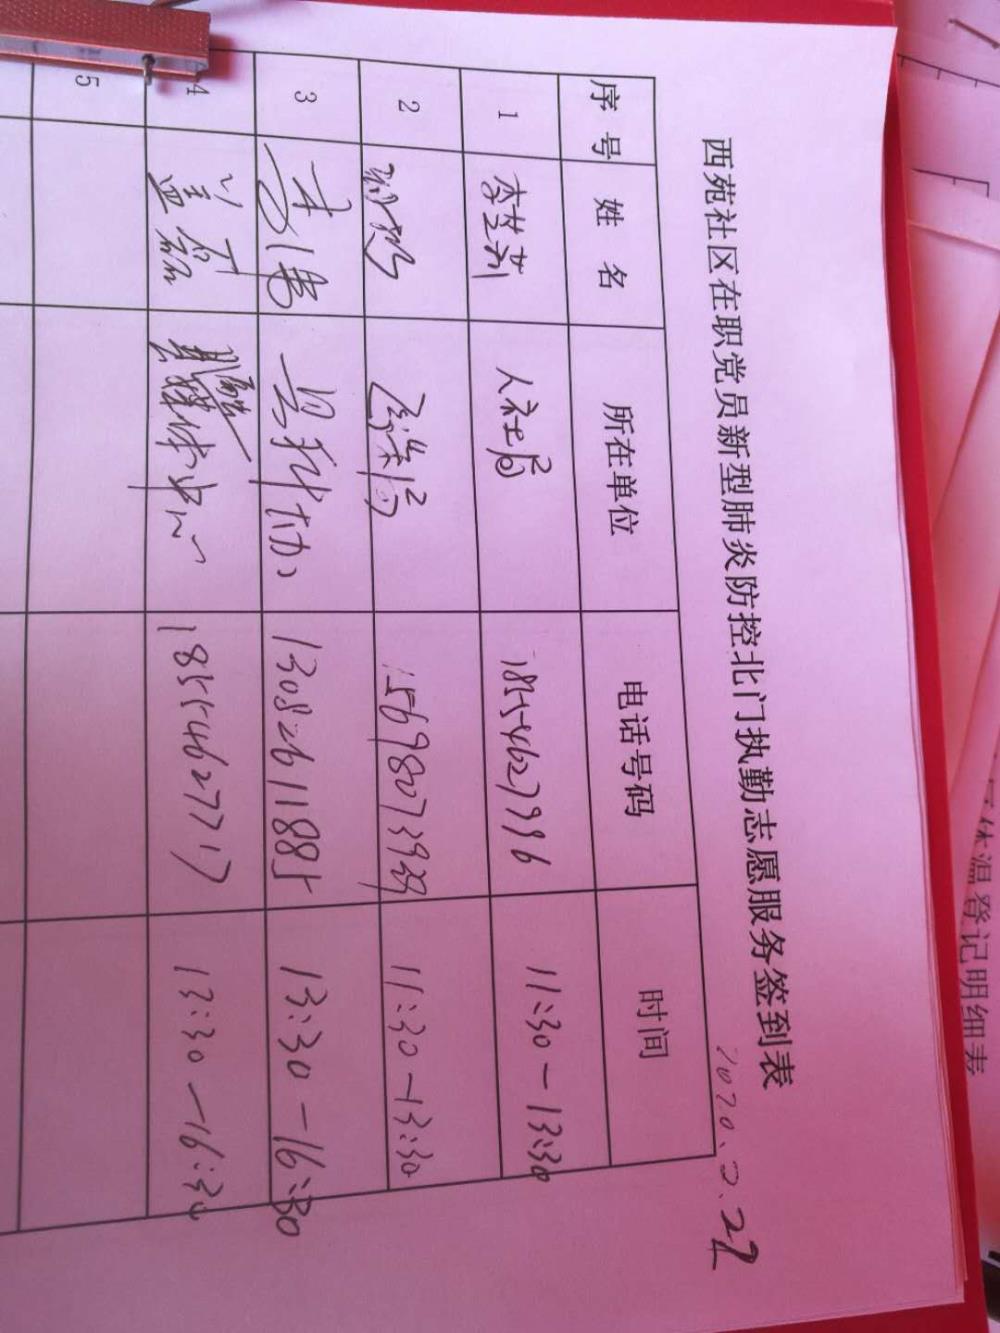 西苑社区在职党员新型肺炎防控北门执勤志愿服务签到表
2020.2.22
序号 姓名 所在单位 电话号码 时间
1 李芝莉 人社局 18554627996 11:30-13:30
2 15698073939 11:30-13:30
3 李倩 县科协 13082611885 13:30-16:30
4 盖磊 融媒体中心 18554627717 13:30-16:30
5
体温登记明细表